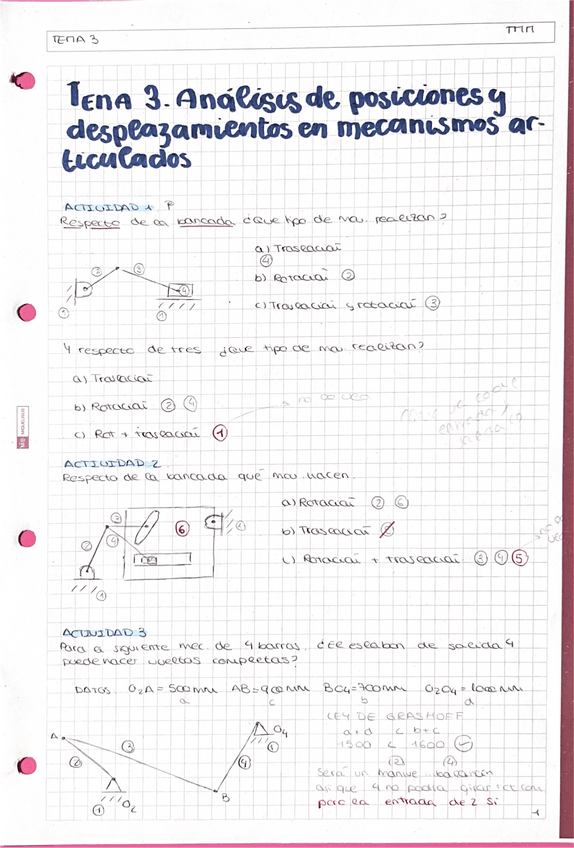 TEMA 3
TMM
TEMA 3. Análisis de posiciones y
desplazamientos en mecanismos ar-
ticulados
ACTIVIDAD 1
Respecto de la bancada ¿Que tipo de mov. realizan?
a) Traslación
④
b) Rotación ②
c) Traslación y rotación ③
② ③ ④
① ①
Y respecto de tres ¿Que tipo de mov realizan?
a) Traslación
b) Rotación ② ④
c) Rot + traslación ①
→ no lo veo
ACTIVIDAD 2
Respecto de la bancada qué mov. hacen
a) Rotación ② ⑥
b) Traslación
c) Rotación + traslación ③ ④ ⑤
③ ⑥ ①
② ④
①
ACTIVIDAD 3
Para la siguiente mec. de 4 barras. ¿El eslabon de salida 4
puede hacer vueltas completas?
DATOS O2A = 500mm AB=900mm BO4=700mm O2O4=1000mm
a c b d
LEY DE GRASHOFF
a+d < b+c
1500 < 1600
② ④
Será un manive. balancín
así que 4 no podía girar
pero la entrada de 2 si
A ③ O4
② ④ ①
① O2 B
1